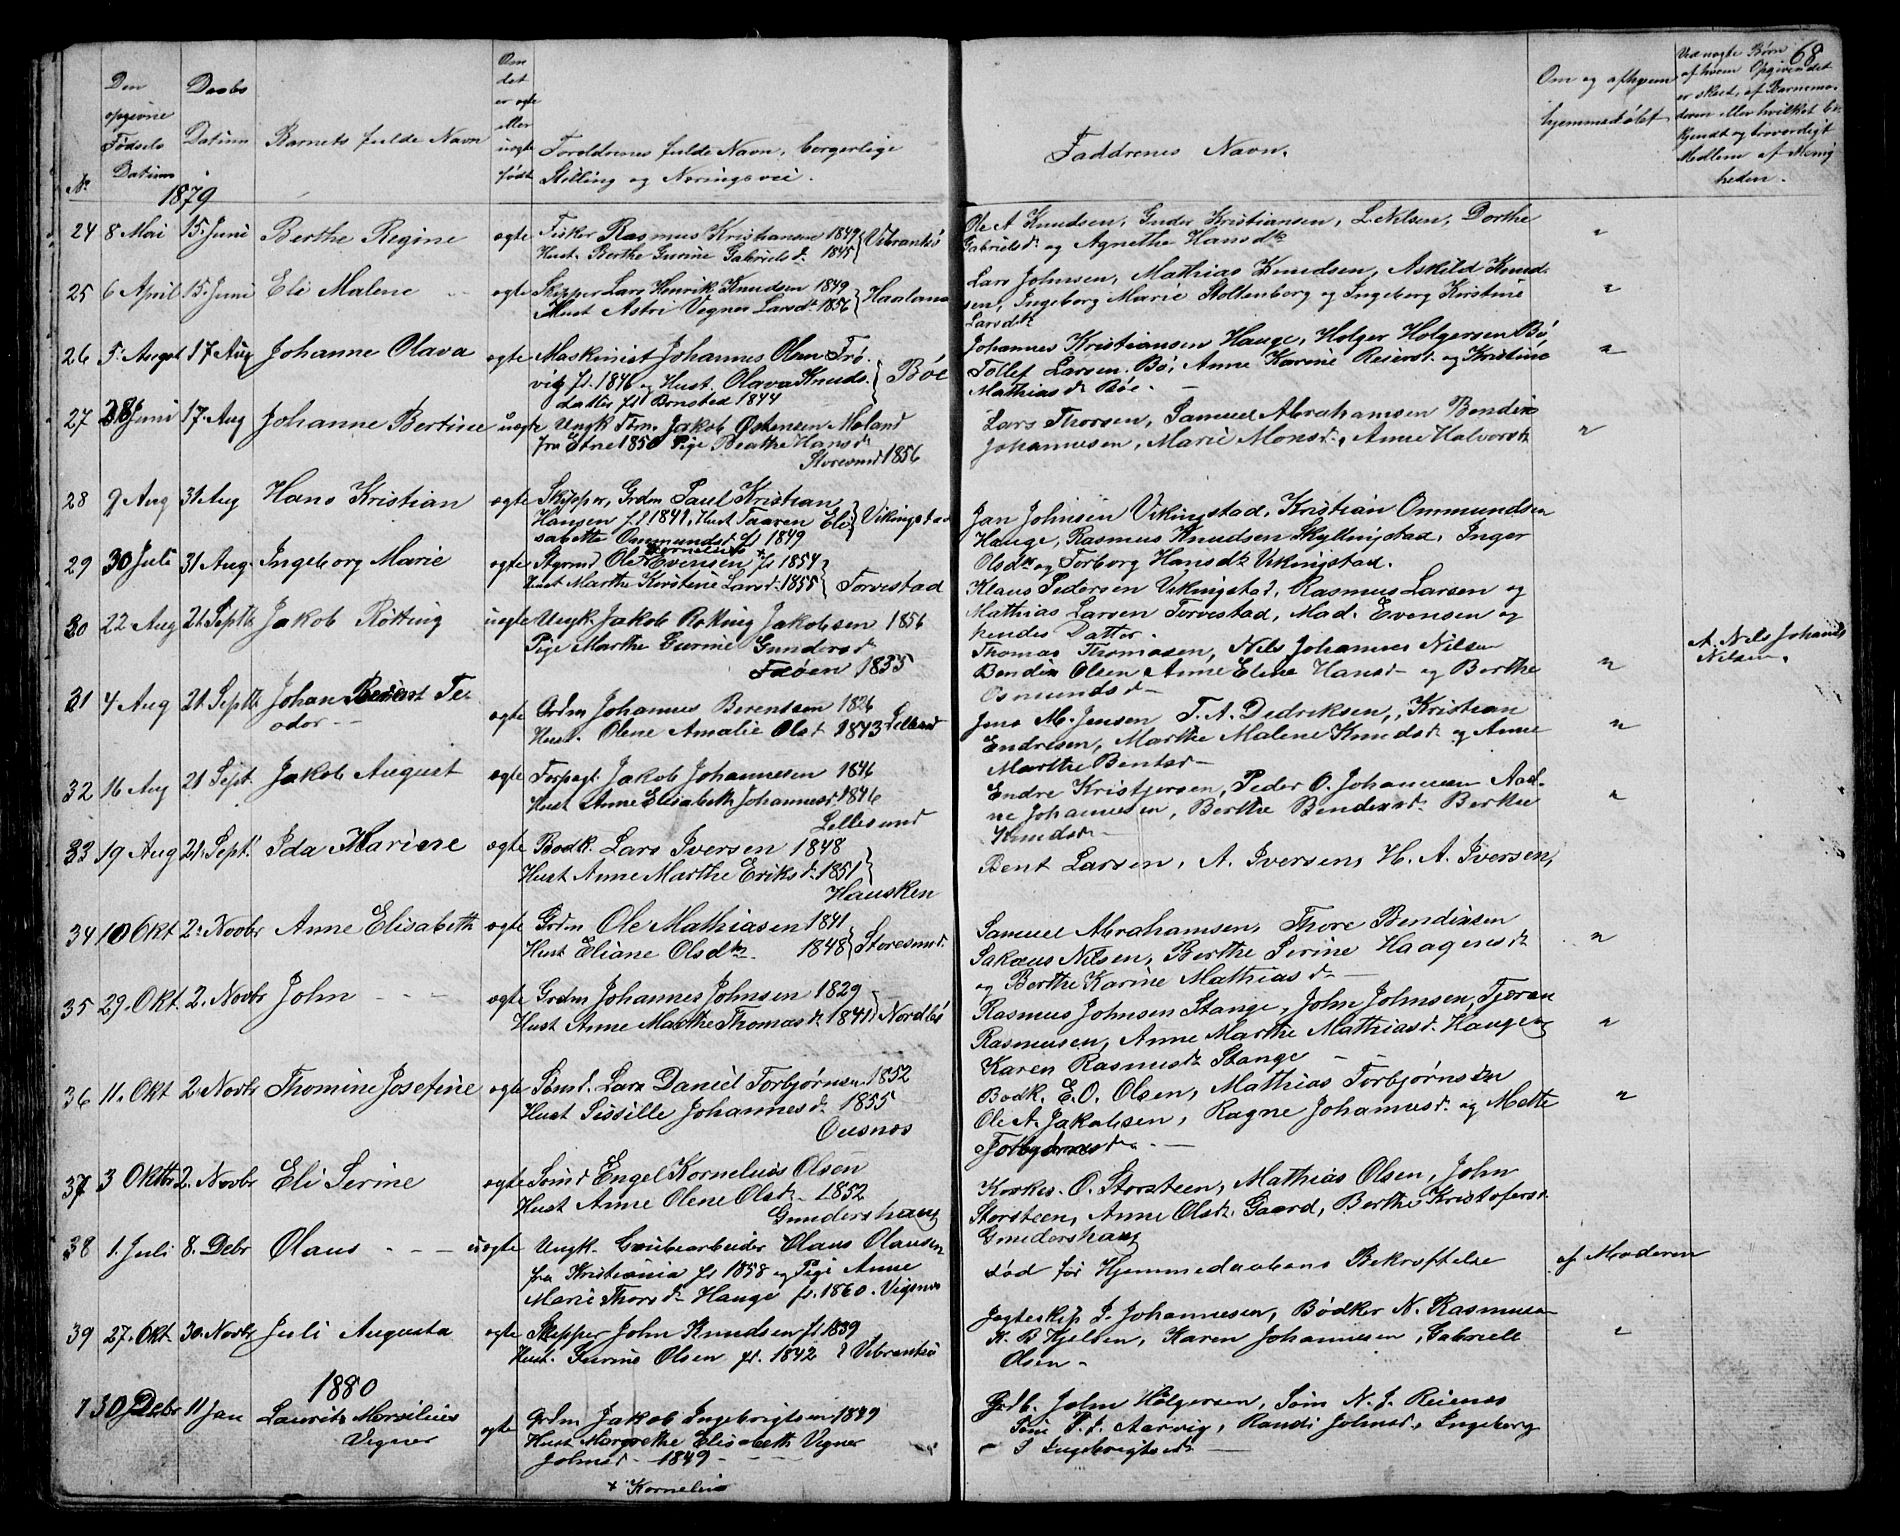 68
Den opgivne Fødsels Datum
Daabs Datum
Barnets fulde Navn
Om det er ægte eller uægte født
Foreldrenes fulde Navn, borgerlige
Stilling og Næringsvei.
Faddrenes Navn.
Om og af hvem
hjemmedøbt
Ved uægte Børn
af hvem Opgivendet
er skeet, af Barnemo-
deren eller hvilket be-
kjendt og troværdigt
Medlem af Menig
heden.
No
1879
24 8 Mai 15 Juni Berthe Regine ægte Fisker Rasmus Kristiansen 1849
Hust. Berthe Gurine Gabrielsd. 1845 Vibrandsö
Ole A Knudsen, Gunder Kristiansen, L. Nilsen, Dorthe
Gabrielsd. og Agnethe Hansdtr "
25 6 April 15 Juni Eli Malene ægte Skipper Lars Henrik Knudsen 1849
Hust Astri Vegner Larsd. 1856 Haaland
Lars Johnsen, Mathias Knudsen, Askild Knud-
sen, Ingeborg Marie Stoltenborg og Ingeborg Kirstine
Larsdtr "
26 5 August 17 Aug Johanne Olava ægte Maskinist Johannes Olsen Trö-
vig fs. 1846 og Hust. Olava Knuds-
datter fs. 1844 Böe
Johannes Kristiansen Hauge, Holger Holgersen Bö,
Tollef Larsen Bö, Anne Karine Reiersd. og Kristine
Mathiasd. Böe. "
27 28 Juni 17 Aug Johanne Bertine uægte Ungk Töm. Jakob Östensen Moland
fra Etne 1850 Pige Beathe Hansd.
Storesund 1856
Lars Thorsen, Samuel Abrahamsen Bendix
Johannesen, Marie Monsd., Anne Halvorsd. "
28 9 Aug 31 Aug Hans Kristian ægte Skipper, Grdm Paul Kristian
Hansen fs 1841, Hust Taaren Eli-
sabette Ommundsd. fs 1849 Vikingstad
Jan Johnsen Vikingstad, Kristian Ommundsen
Hauge, Rasmus Knudsen Skyllingstad, Inger
Olsdtr og Torborg Hansdtr Vikingstad.
29 30 Juli 31 Aug. Ingeborg Marie ægte Styrmd Ole Evensen + fs 1854
Hust Marthe Kirstine Larsd. 1855 Torvestad
Klaus Pedersen Vikingstad, Rasmus Larsen og
Mathias Larsen Torvestad, Mad. Evensen og
hendes Datter.
30 22 Aug 21 Septb Jakob Rötting uægte Ungk. Jakob Rötting Jakobsen 1856
Pige Marthe Gurine Gundersd.
Fæöen 1855
Thomas Thomasen, Nils Johannes Nilsen
Bendix Olsen Anne Elene Hansd. og Berthe
Osmundsd. "
A. Nils Johanns
Nilsen.
31 4 Aug 21 Septb Johan Berent Te-
odor ægte Grdm Johannes Berentsen 1826
Hust. Olene Amalie Olsd. 1843 Lillesund
Jens M. Jensen, T. A. Dedriksen, Kristian
Endresen, Marthe Malene Knudsd. og Anne
Marthe Bentsd. "
32 16 Aug 21 Sept. Jakob August ægte Forpagt. Jakob Johannesen 1846
Hust Anne Elisabeth Johannesd. 1846
Lillesund
Endre Kristjersen, Peder O. Johannesen Aad-
ne Johannesen, Berthe Bendixsd. Berthe
Knudsd. "
33 19 Aug 21. Sept. Ida Marine ægte Bødk. Lars Iversen 1848
Hust Anne Marthe Eriksd. 1851
Hausken
Bent Larsen, A. Iversen, H. A. Iversen,
34 10 Okt 2. Novbr Anne Elisabeth ægte Grdm Ole Mathiasen 1841
Hust Eliane Olsdtr. 1848 Storesund.
Samuel Abrahamsen, Thore Bendixsen
Sakæus Nilsen, Berthe Serine Haagensd.
og Berthe Karine Mathiasd. "
35 29. Okt. 2. Novbr John ægte Grdm Johannes Johnsen 1829
Hust Anne Marthe Thomasd. 1841 Nordbö
Rasmus Johnsen Stange, John Johnsen, Tjeran
Rasmusen, Anne Marthe Mathiasd. Hauge og
Karen Rasmusd. Stange "
36 11. Okt 2 Novbr Thomine Josefine ægte Sömd. Lars Daniel Torbjörnsen 1852
Hust Sissille Johannesd. 1855
Ousnæs
Bødk. E. O. Olsen, Mathias Torbjörnsen
Ole A. Jakobsen, Ragne Johannesd. og Mette
Torbjörnsd. "
37 3 Oktbr 2. Novbr Eli Serine ægte Sömd Engel Kornelius Olsen
Hust Anne Olene Olsd. 1852
Gundershaug
Korkes. O. Storsteen, Mathias Olsen, John
Storsteen, Anne Olsd. Gaard, Berthe Kristofersd.
Gundershaug
38 1. Juli 8. Debr Olaus uægte Ungk. Grubearbeider Olaus Olausen
fra Kristiania fs 1858 og Pige Anne
Marie Thorsd. Hauge fs. 1860. Vigsnæs
död för Hjemmedaabens Bekræftelse
af Moderen
39 27. Okt. 30. Novbr Juli Augusta ægte Skipper John Knudsen fs 1839
Hust. Gurine Olsen fs. 1842 Vibrandsö
Jægteskip. J. Johannesen, Bödker N. Rasmusen
K. B Hjelsen, Karen Johannesen, Gabrielle
Olsen. "
1880
1 30 Debr 11 Jan Laurits Marsilius
Vegner ægte Grdm Jakob Ingebrigtsen 1849
Hust Margrethe Elisabeth Vegner
Johnsd. 1849
Grdb. John Holgersen, Söm N. J. Reienæs
Töm P. J. Aarvig, Randi Johnsd., Ingeborg
S Ingebrigtsd.
+ Kornelius